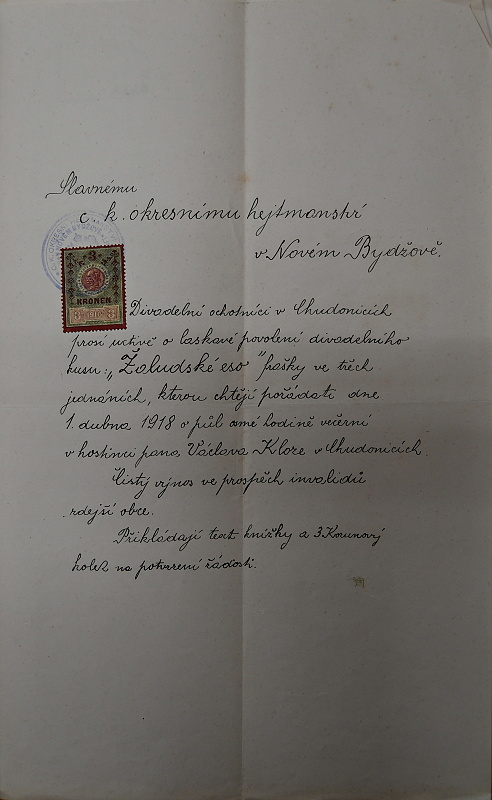 Slavnému
c. k. okresnímu hejtmanství
v Novém Bydžově.
3
KRONEN
Divadelní ochotníci v Chudonicích
prosí uctivě o laskavé povolení divadelního
kusu: „Žaludské eso" frašky ve třech
jednáních, kterou chtějí pořádati dne
1. dubna 1918 o půl osmé hodině večerní
v hostinci pana Václava Kloze v Chudonicích.
Čistý výnos ve prospěch invalidů
zdejší obce.
Přikládají text knížky a 3 Korunový
kolek na potvrzení žádosti.